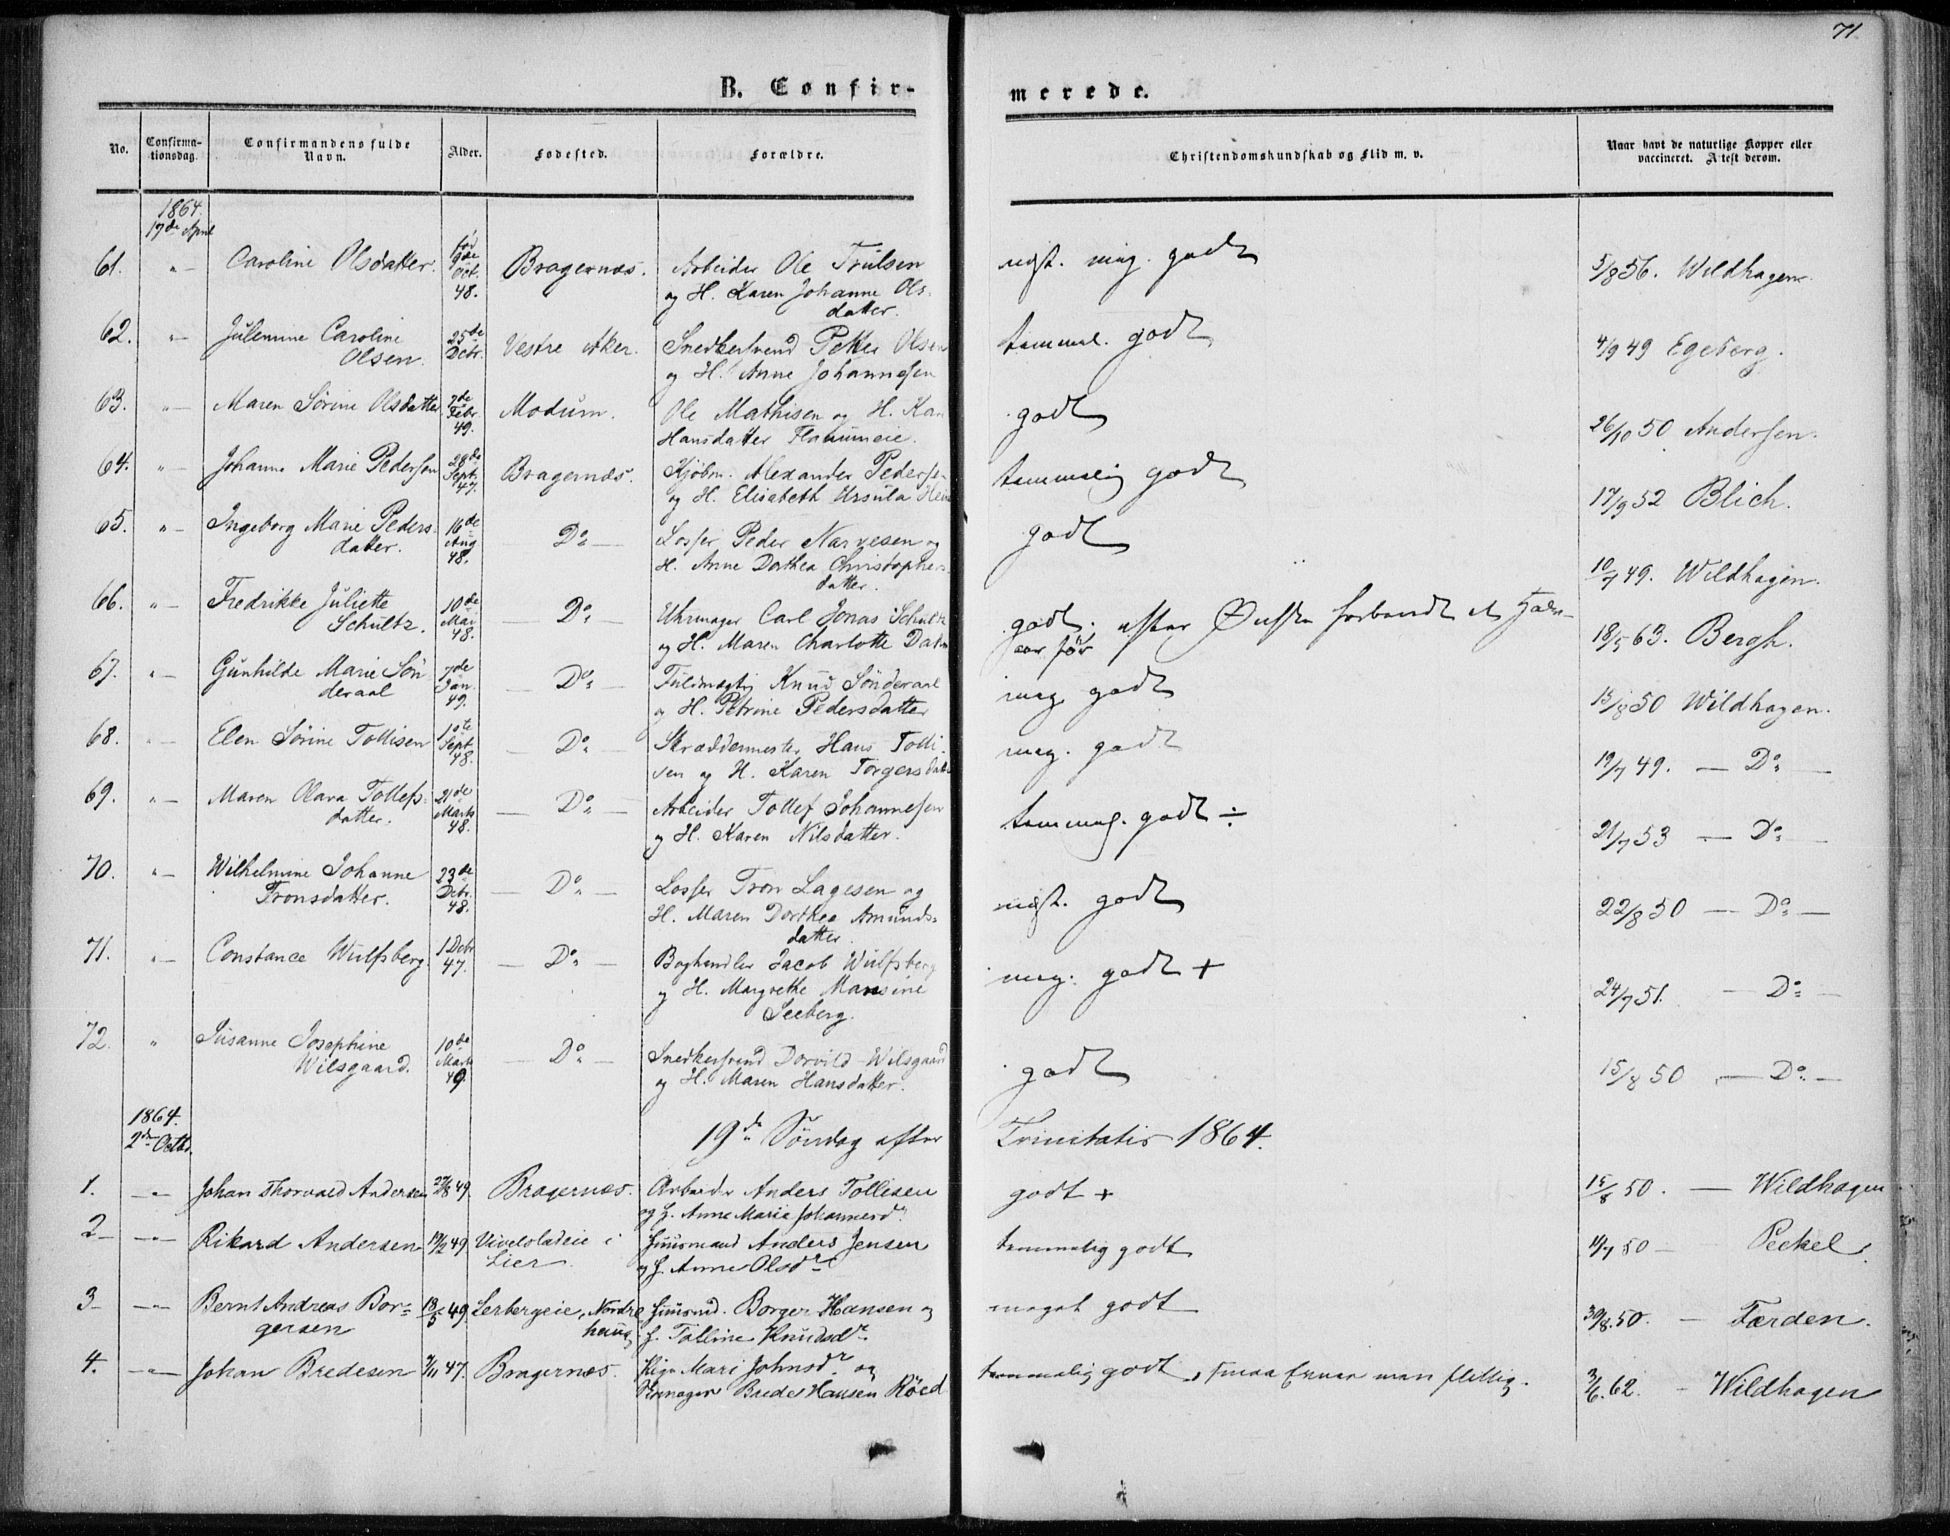 71
B. Confir-
merede.
No.
Confirma-
tionsdag.
Confirmandens fulde
Navn.
Alder.
Fødested.
Forældre.
Christendomskundskab og Flid m. v.
Naar havt de naturlige Kopper eller
vaccineret. Attest derom.
1864.
17de April
61. "— Caroline Olsdatter. 9de Oct. 48. Bragernæs. Arbeider Ole Trulsen
og H. Karen Johanne Ols-
datter.
mgt. meg. godt
5/8 56. Wildhagen.
62. "— Julemine Caroline
Olsen.
25de Decbr. Vestre Aker. Snedkersvend Petter Olsen
og H. Anne Johannesen
temmel. godt
4/9 49 Egeberg.
63. "— Maren Sørine Olsdatter 7de Febr. 49. Modum. Ole Mathisen og H. Kari
Hansdatter
godt
26/10 50 Andersen.
64. "— Johanne Marie Pedersen 28de Sept. 47. Bragernæs. Kjøbm. Alexander Pedersen
og H. Elisabeth Ursula
temmelig godt
17/9 52 Blich.
65. "— Ingeborg Marie Peders-
datter.
16de Aug 48. — Do — Losser Peder Narvesen og
H. Anne Dorthea Christopher-
datter.
godt
10/7 49. Wildhagen.
66. "— Fredrikke Juliette
Schultz.
10de Mai 48. — Do — Uhrmager Carl Jonas Schultz
og H. Maren Charlotte
godt. efter
18/5 63. Bergh.
67. "— Gunhilde Marie Søn
deraal
7de Jan. 49. — Do — Fuldmægtig Knud Sønderaal
og H. Petrine Pedersdatter
meg. godt
15/8 50 Wildhagen.
68. "— Elen Sørine Tollisen 10te Sept. 48. — Do — Skræddermester Hans Tolli-
sen og H. Karen Torgersdatter
meg. godt
19/7 49. — Do —
69. "— Maren Olava Tollefs-
datter.
21de Marts 48. — Do — Arbeider Tollef Johannesen
og H. Karen Nilsdatter.
temmel. godt ÷
21/7 53 — Do —
70. "— Wilhelmine Johanne
Tronsdatter.
23de Debr. 48. — Do — Losser Tron Lagesen og
H. Maren Dorthea Amunds-
datter.
mgt. godt
22/8 50 — Do —
71. "— Constance Wulfsberg. 1 Debr 47. — Do — Boghandler Jacob Wulfsberg
og H. Margrethe Mansine
Seeberg.
meg. godt +
24/7 51. — Do —
72. " Susanne Josephine
Wilsgaard.
10de Marts 49. — Do — Snedkersvend Dorvild Wilsgaard
og H. Maren Hansdatter.
godt
15/8 50 — Do —
1864.
2den Octbr.
19de Søndag efter Trinitatis 1864.
1. —"— Johan Thorvald Andersen 27/8 49. Bragernæs. Arbeider Anders Tollisen
og H. Anne Marie Johannesdr
godt +
15/8 50. — Wildhagen
2 —"— Rikard Andersen 19/2 49 Vivelstadeie i
Lier
Huusmand Anders Jensen
og H. Anne Olsdr
temmelig godt
11/7 50 — Peckel.
3 —"— Bernt Andreas Bor-
gersen
18/5 49 Lerbergeie, Nordre
houg.
Huusmd. Borger Hansen og
H. Tolline Knudsdr.
meget godt
30/8. 50. — Færden.
4. —"— Johan Bredesen 9/11 47. Bragernæs. Pige Mari Johnsdr og
Brede Hansen Røed
temmelig godt, smaa Evner men flittig.
3/6. 62. — Wildhagen